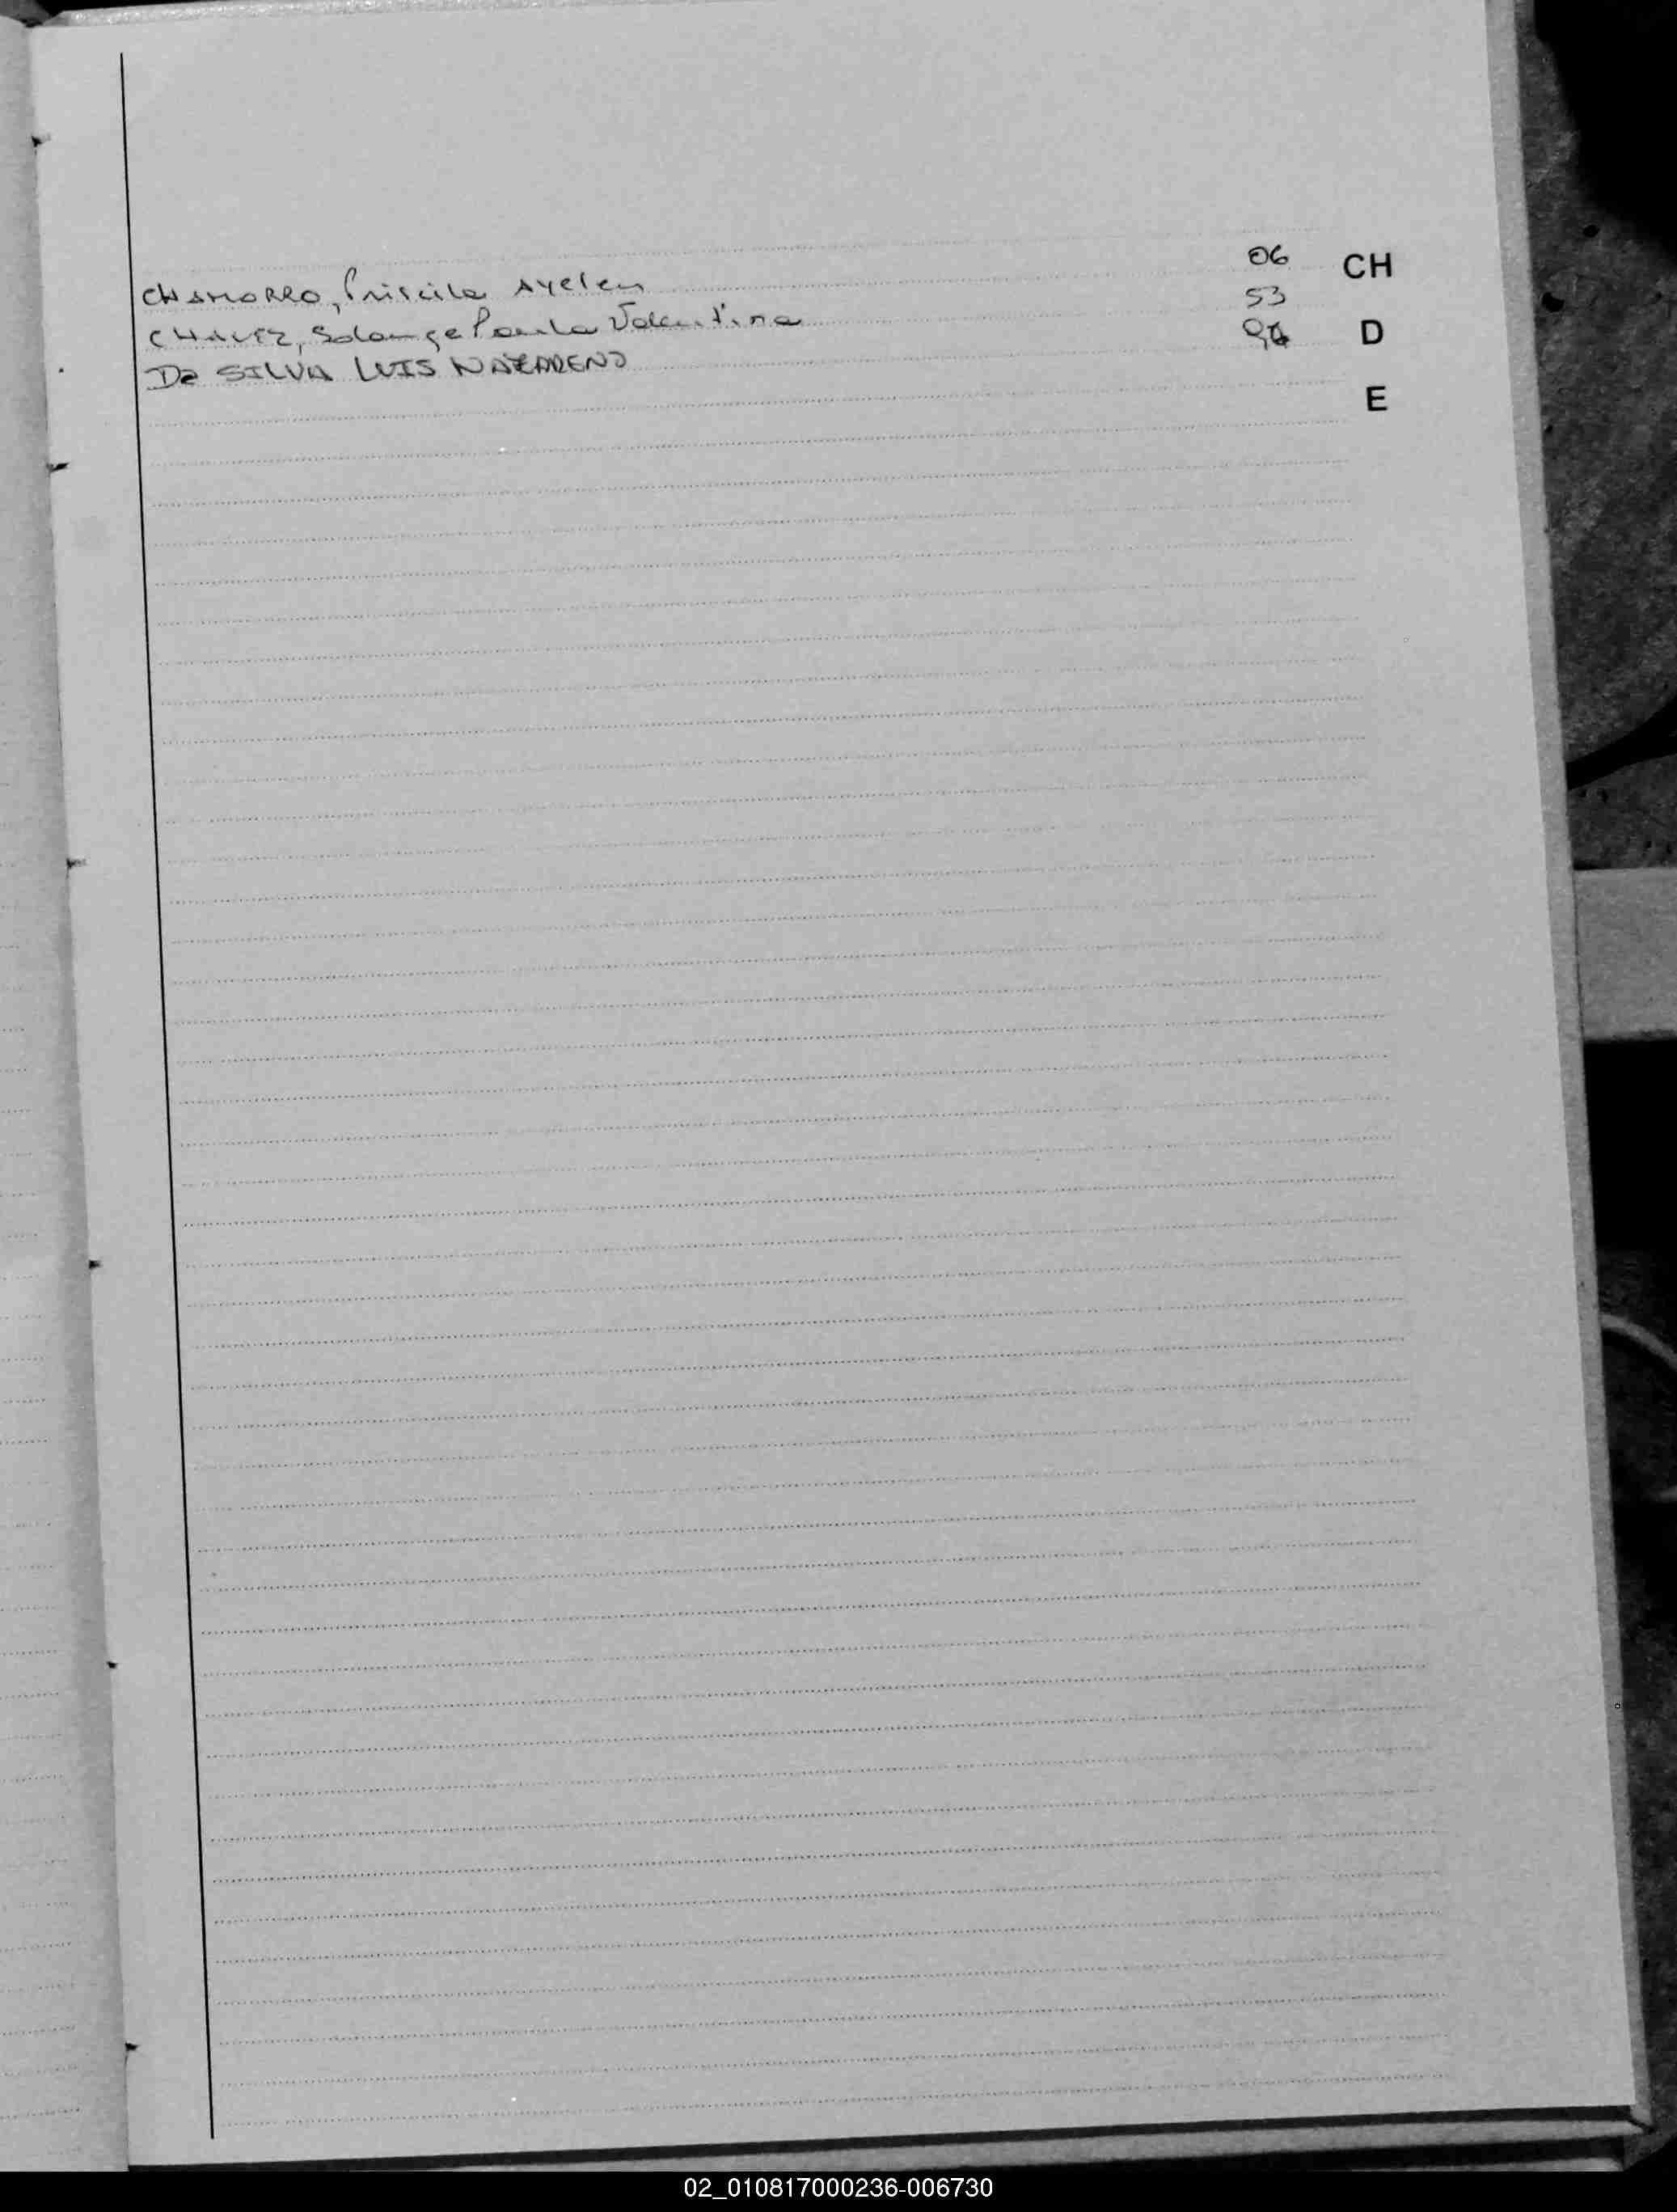 CHAMORRO, Priscila Ayelen 06 CH
CHAVEZ, Solange Paula Valentina 53
DE SILVA LUIS NAZARENO D
E
02_010817000236-006730